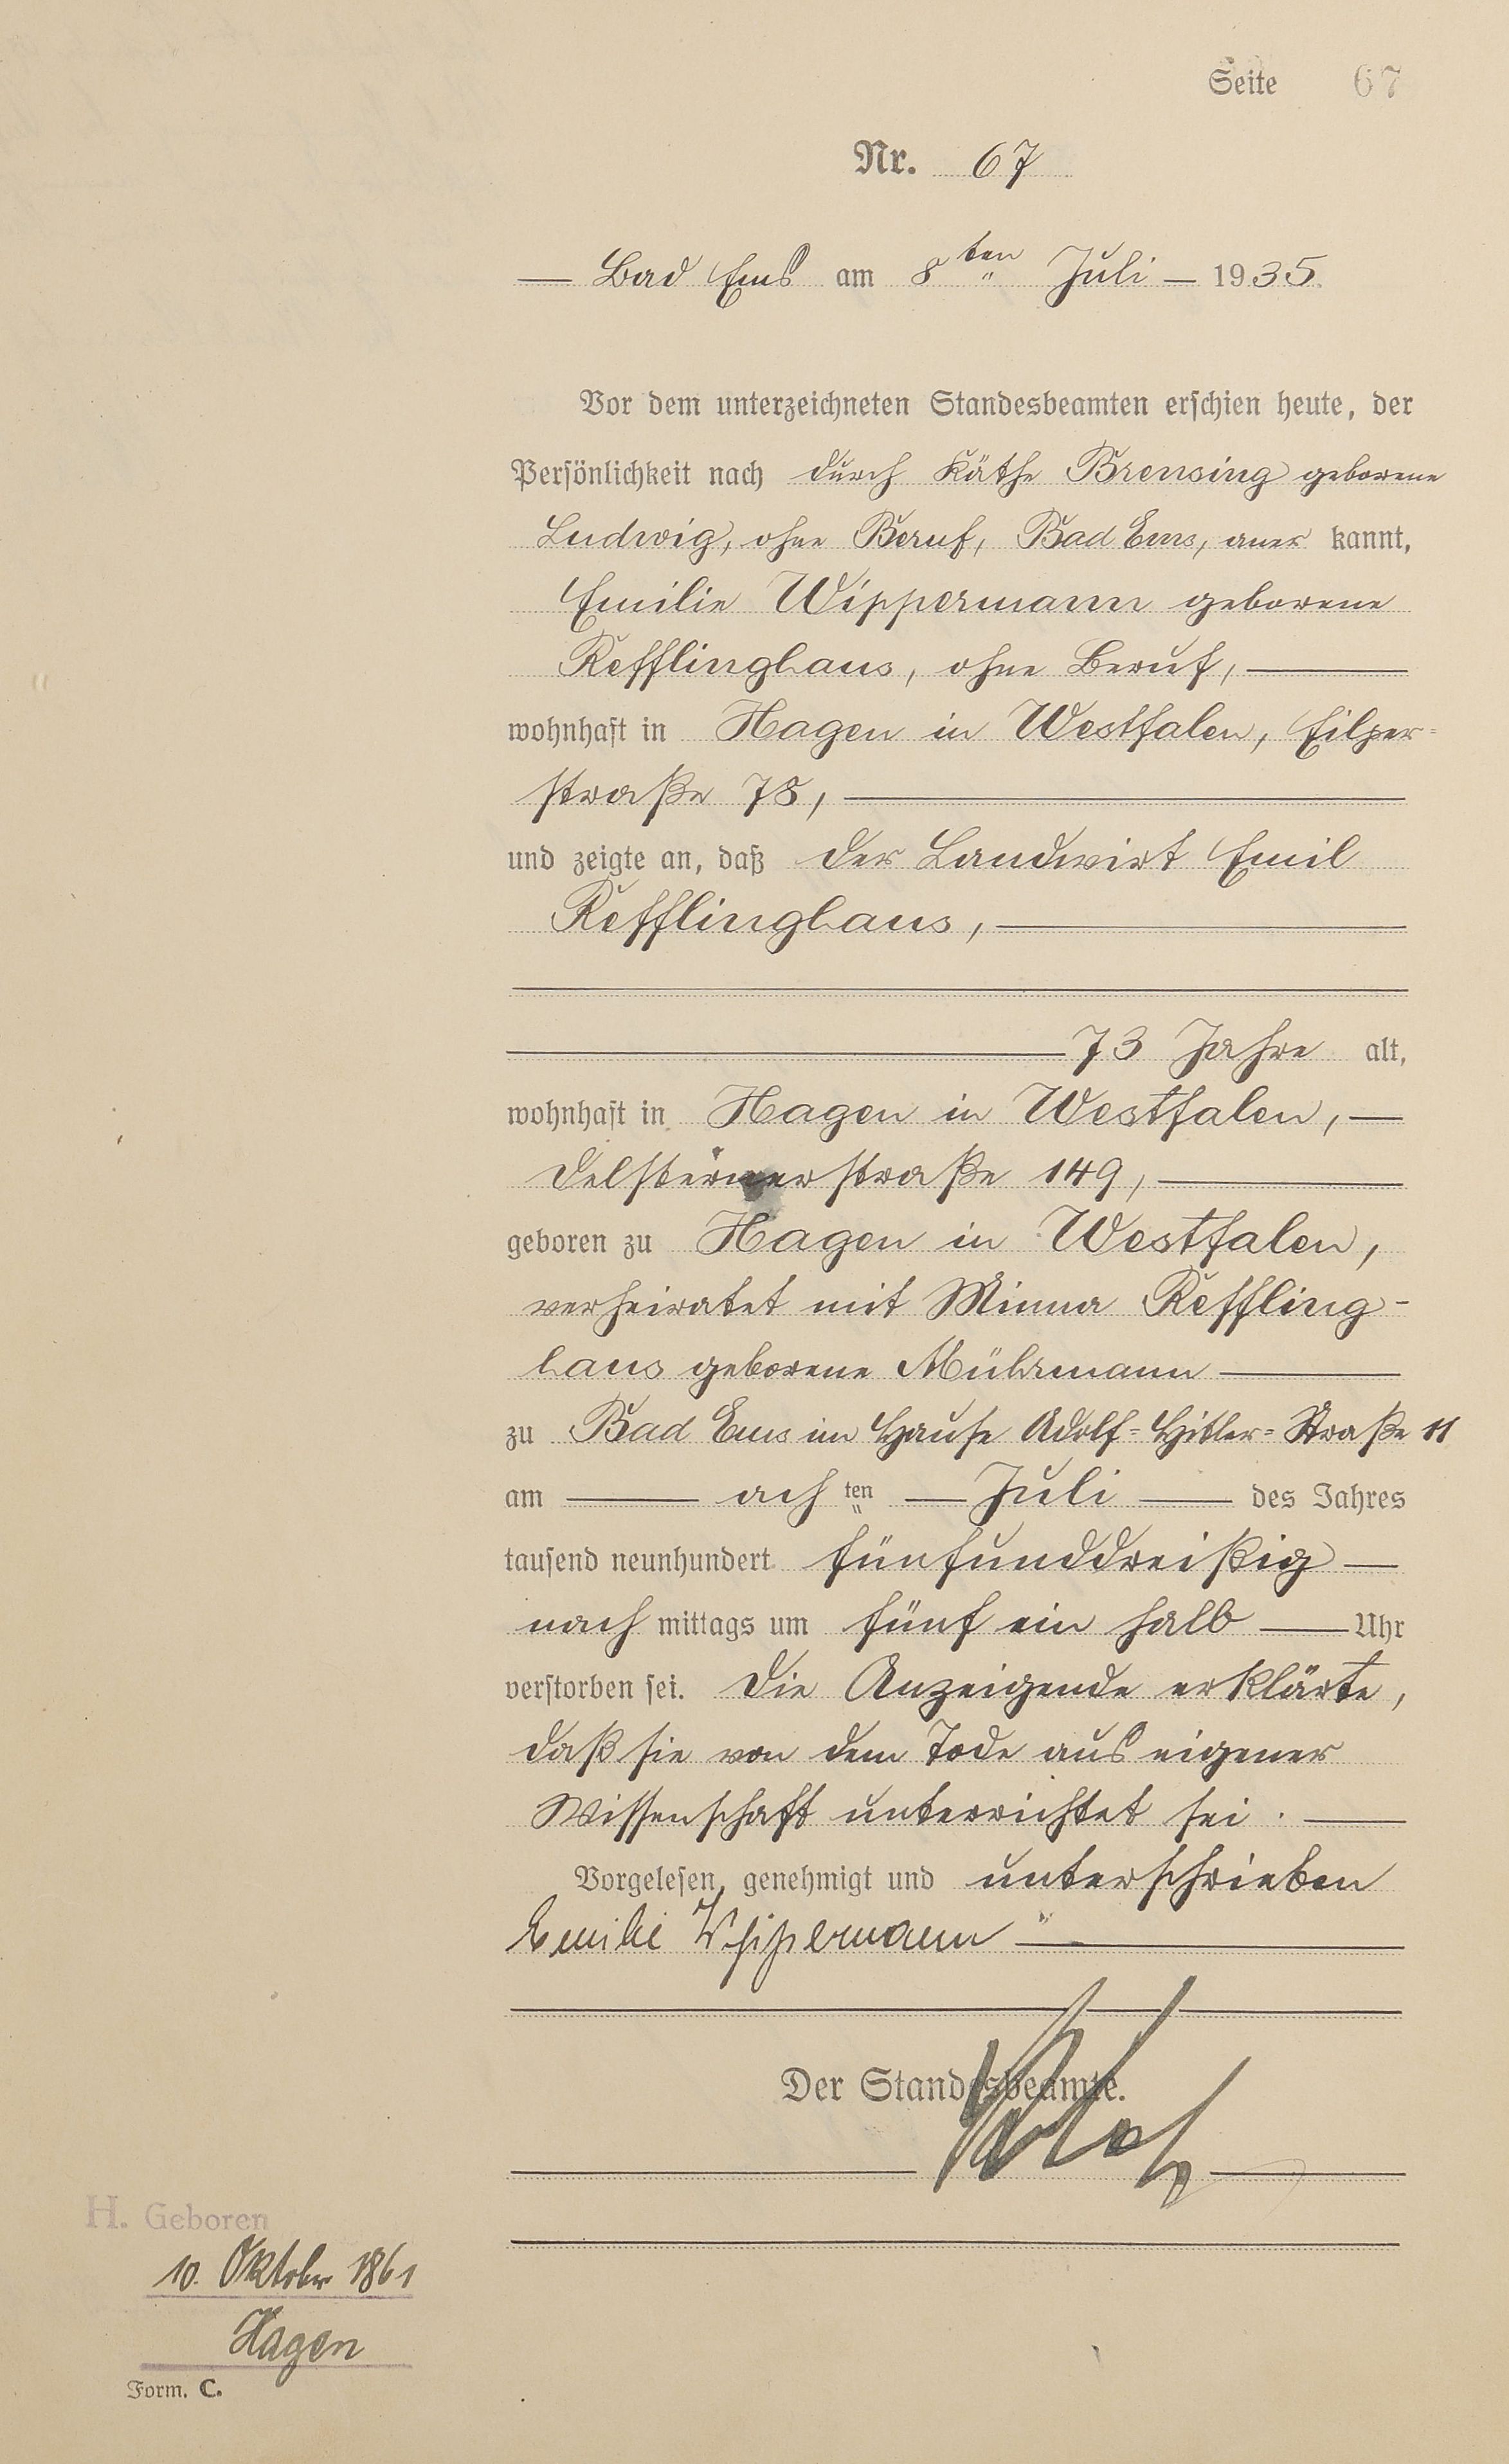 Seite 67
Nr. 67
— Bad Ems am 8ten Juli — 1935.
Vor dem unterzeichneten Standesbeamten erschien heute, der
Persönlichkeit nach durch Käthe Brensing geborene
Ludwig, ohne Beruf, Bad Ems, aner kannt,
Emilie Wippermann geborene
Refflinghaus, ohne Beruf, —
wohnhaft in Hagen in Westfalen, Eilper=
straße 78, —
und zeigte an, daß der Landwirt Emil
Refflinghaus, —
— 73 Jahre alt,
wohnhaft in Hagen in Westfalen, —
Delsternerstraße 149, —
geboren zu Hagen in Westfalen,
verheiratet mit Minna Reffling-
haus geborene Mührmann —
zu Bad Ems im Hause Adolf=Hitler=Straße 11
am — ach ten — Juli — des Jahres
tausend neunhundert fünfunddreißig —
nach mittags um fünf ein halb — Uhr
verstorben sei. Die Anzeigende erklärte,
daß sie von dem Tode aus eigener
Wissenschaft unterrichtet sei. —
Vorgelesen, genehmigt und unterschrieben
Emilie Wippermann —
Der Standesbeamte.
H. Geboren
10. Oktober 1861
Hagen
Form. C.